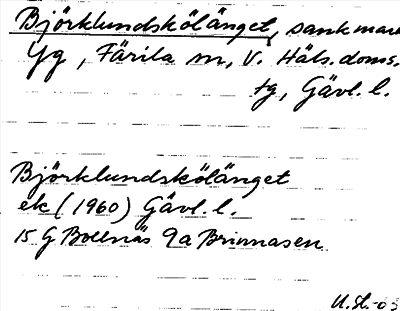 Björklundskölänget, sankmark
Yg, Färila sn, V. Häls. doms.
tg, Gävl. l.
Björklundskölänget
ek (1960) Gävl. l.
15 G Bollnäs 9a Brinnåsen
U.H. -05